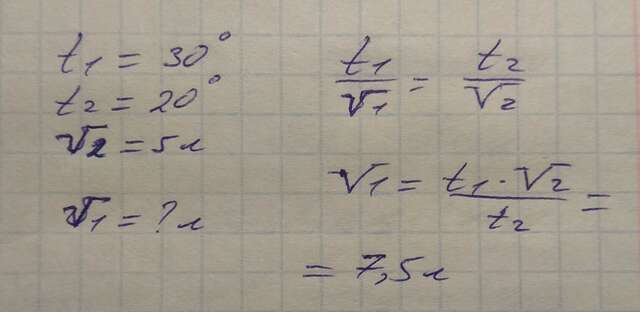 t₁ = 30°
t₂ = 20°
V₂ = 5л
V₁ = ? л
t₁/V₁ = t₂/V₂
V₁ = t₁ · V₂/t₂ =
= 7,5л